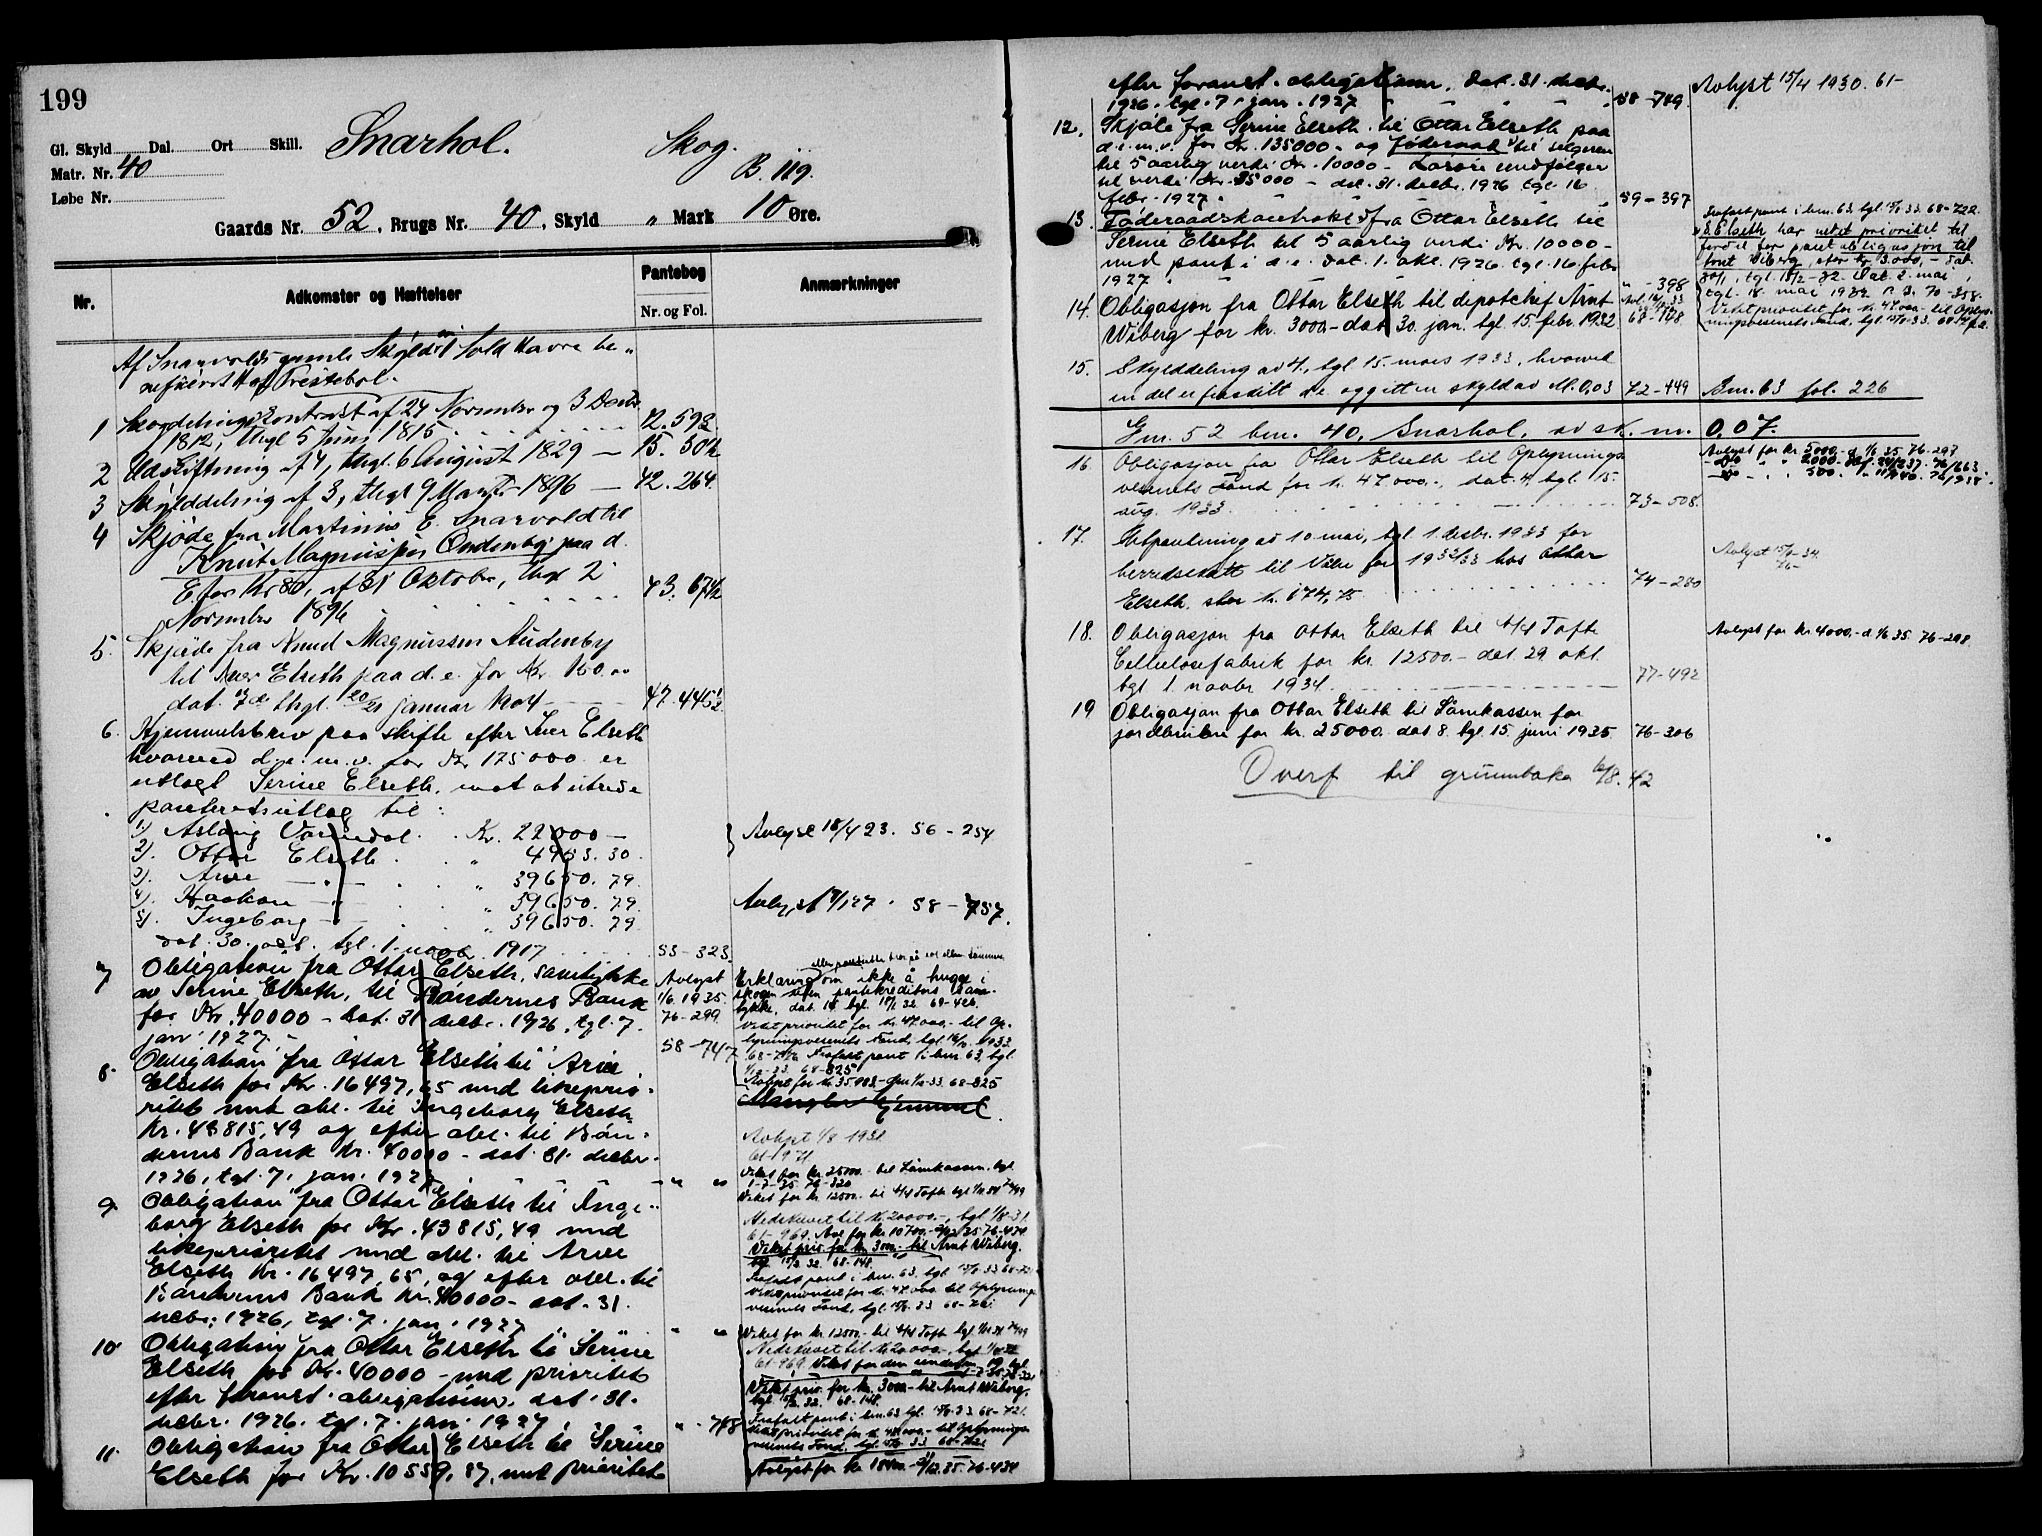 199
Gl. Skyld Dal. Ort Skill. Snarhol. Skog.
Matr. Nr. 40 B. 119.
Løbe Nr.
Gaards Nr. 52, Brugs Nr. 40, Skyld " Mark 10 Øre.
Nr. Adkomster og Hæftelser Pantebog Anmærkninger
Nr. og Fol.
Af Snarvolds gamle Skyld Sold Havre be-
neficeret Præstebol.
1 Skogdelingskontrakt af 24 November og 3 Decbr
1812, thgl 5 Juni 1815 12.593
2 Udskiftning af 4, thgl. 6 August 1829 — 15. 30½
3 Skylddeling af 3, thgl 9 Marts 1896 — 42.264
4 Skjøde fra Martinius E. Snarvold til
Knut Magnussøn Oudenby paa d.
E. for Kr 80, af 31 Oktober, thgl 2
November 1896 43. 67½
5. Skjøde fra Knud Magnussen Audenby
til Iver Elseth paa d. e. for Kr 150.00
dat. thgl. 20/21 januar 1904 47.445½
6. Hjemmelsbrev paa skifte efter Iver Elseth
hvorved d. e. m. v. for Kr 175000 er
utlagt Serine Elseth, mot at utrede
panteretsutlæg til:
1). Aslaug Varnedal. Kr. 22000 —
2). Ottar Elseth " 4953.30
3). Arne — " — " 39650.79
4). Haakon — " — " 39650.79
5). Ingeborg — " — " 39650.79
dat. 30. okt. tgl. 1. novbr. 1917 53-323
Avlyst 18/4 23. 56-254
Avlyst 17/1 27. 58-757.
7 Obligation fra Ottar Elseth, samtykke
av Serine Elseth, til Bøndernes Bank
for Kr. 40000 - dat. 31 decbr. 1926, tgl. 7.
jan. 1927 58-747
Avlyst
1/6.1935.
76-299
Erklæring om ikke å hugge i
skogen uten pantekreditors sam-
tykke, dat. tgl. 18/1 32 69-426.
vikt prioritet for kr. 47.000.- til Op-
lysningsvesenets Fond, tgl 15/8 1933
68-721. Frafalt pant i bnr. 63, tgl
68-825
Avlyst for kr. 35.000.- 68-825
Mangler hjemmel
8. Obligation fra Ottar Elseth til Arne
Elseth for Kr. 16497,65 med likeprio-
ritet med obl. til Ingeborg Elseth
Kr. 43815,49 og efter obl. til Bøn-
dernes Bank Kr. 40000 - dat. 31. decbr.
1926, tgl. 7. jan. 1927 " "
Avlyst 1/8 1931
61-971
Veket for kr. 25000.- til Lånekassen. tgl.
1-7-35 76-320
Veket for kr. 12500.- til A/S Tofte tgl
9. Obligation fra Ottar Elseth til Inge-
borg Elseth for Kr. 43815,49 med
likeprioritet med obl. til Arne
Elseth Kr. 16497,65, og efter obl. til
Bøndernes Bank Kr. 40000 - dat. 31.
decbr. 1926, tgl. 7. jan. 1927 " "
Nedskrevet til kr. 20000.-, tgl 1/8-31
61-969. Avl. for kr 10700.- 76-434
Veket prior. for kr. 3000.- til Arnt Wiberg.
tgl. 15/2 32. 68-148.
Frafalt pant i bnr. 63. tgl. 15/8-33 68-721
vikt prioritet for kr. 47.000 til Oplysnings-
vesenets Fond, tgl. 15/8-33 68-721
10. Obligation fra Ottar Elseth til Serine
Elseth for Kr. 40000 - med prioritet
efter foranst. obligationer. dat. 31.
decbr. 1926. tgl. 7. jan. 1927 " - 748
Veket for kr. 12500.- til A/S Tofte tgl
Nedskrevet til kr. 20000.-, tgl 1/8-31
61-969. Veket for den under nr. 19 tgl
Veket prior. for kr. 3000.- til Arnt Wiberg.
tgl. 15/2 32. 68-148.
Frafalt pant i bnr. 63 tgl. 15/8-33 68-721.
vikt prioritet for kr. 47.000.- til Oplysnings-
vesenets Fond, tgl. 15/8-33 68-721
Avlyst for kr. 76-434
11. Obligation fra Ottar Elseth til Serine
Elseth for Kr. 10559,87, med prioritet
efter foranst. obligationer. dat. 31. decbr.
1926. tgl. 7. jan. 1927 58-749 Avlyst 15/4 1930. 61-
12. Skjøte fra Serine Elseth til Ottar Elseth paa
d. e. m. v. for Kr. 135000.- og føderaad til selgeren
til 5 aarlig verdi Kr. 10000 - Løsøre medfølger
til verdi Kr. 35000 - dat. 31. decbr. 1926 tgl. 16
febr. 1927. 59-397
13. Føderaadskontrakt fra Ottar Elseth til
Serine Elseth til 5 aarlig verdi Kr. 10000 -
med pant i d. e. dat. 1. okt. 1926. tgl. 16 febr
1927 " - 398
Frafalt pant i bnr. 63 tgl. 15/8 33. 68-722.
S. Elseth har veket prioritet til
fordel for pant obligasjon til
Arnt Wiberg, stor kr 3.000,- dat.
30/1, tgl. 15/2-32. Dat. 2. mai,
tgl. 18. mai 1932 70-358.
Veket prioritet for kr. 47.000.- til Oplys-
ningsvesenets Fond, tgl. 15/8-33. 68-722.
14. Obligasjon fra Ottar Elseth til depotchef Arnt
Wiberg for kr. 3000.- dat 30. jan. tgl. 15. febr 1932 68-148
15. Skylddeling av 4., tgl 15. mars 1933, hvorved
en del er fraskilt d. e. og gitt en skyld av M. 0,03 72-449 Bnr. 63 fol. 226
Gnr. 52 bnr. 40, Snarhol, av sk. m. 0.07.
16. Obligasjon fra Ottar Elseth til Oplysnings-
vesenets Fond for kr. 47.000.-, dat. 4, tgl. 15.
aug. 1933 73-508.
Avlyst for kr 5000.- d. 1/6 35 76-297
-do- " " 2000.- 76/663.
-do- " " 500.
17. Utpantning av 10 mai, tgl 1. desbr. 1933 for
herredsskatt til Våler for 1932/33 hos Ottar
Elseth, stor kr. 674,75 74-280
18. Obligasjon fra Ottar Elseth til A/S Tofte
Cellulosefabrik for kr. 12500.- dat. 29. okt.
tgl 1. novbr 1934 77-492
Avlyst for kr 4000.- d. 1/6 35. 76-298
19 Obligasjon fra Ottar Elseth til Lånekassen for
jordbrukere for kr. 25000. dat 8. tgl. 15. juni 1935 76-306
Overf til grunnboka 42